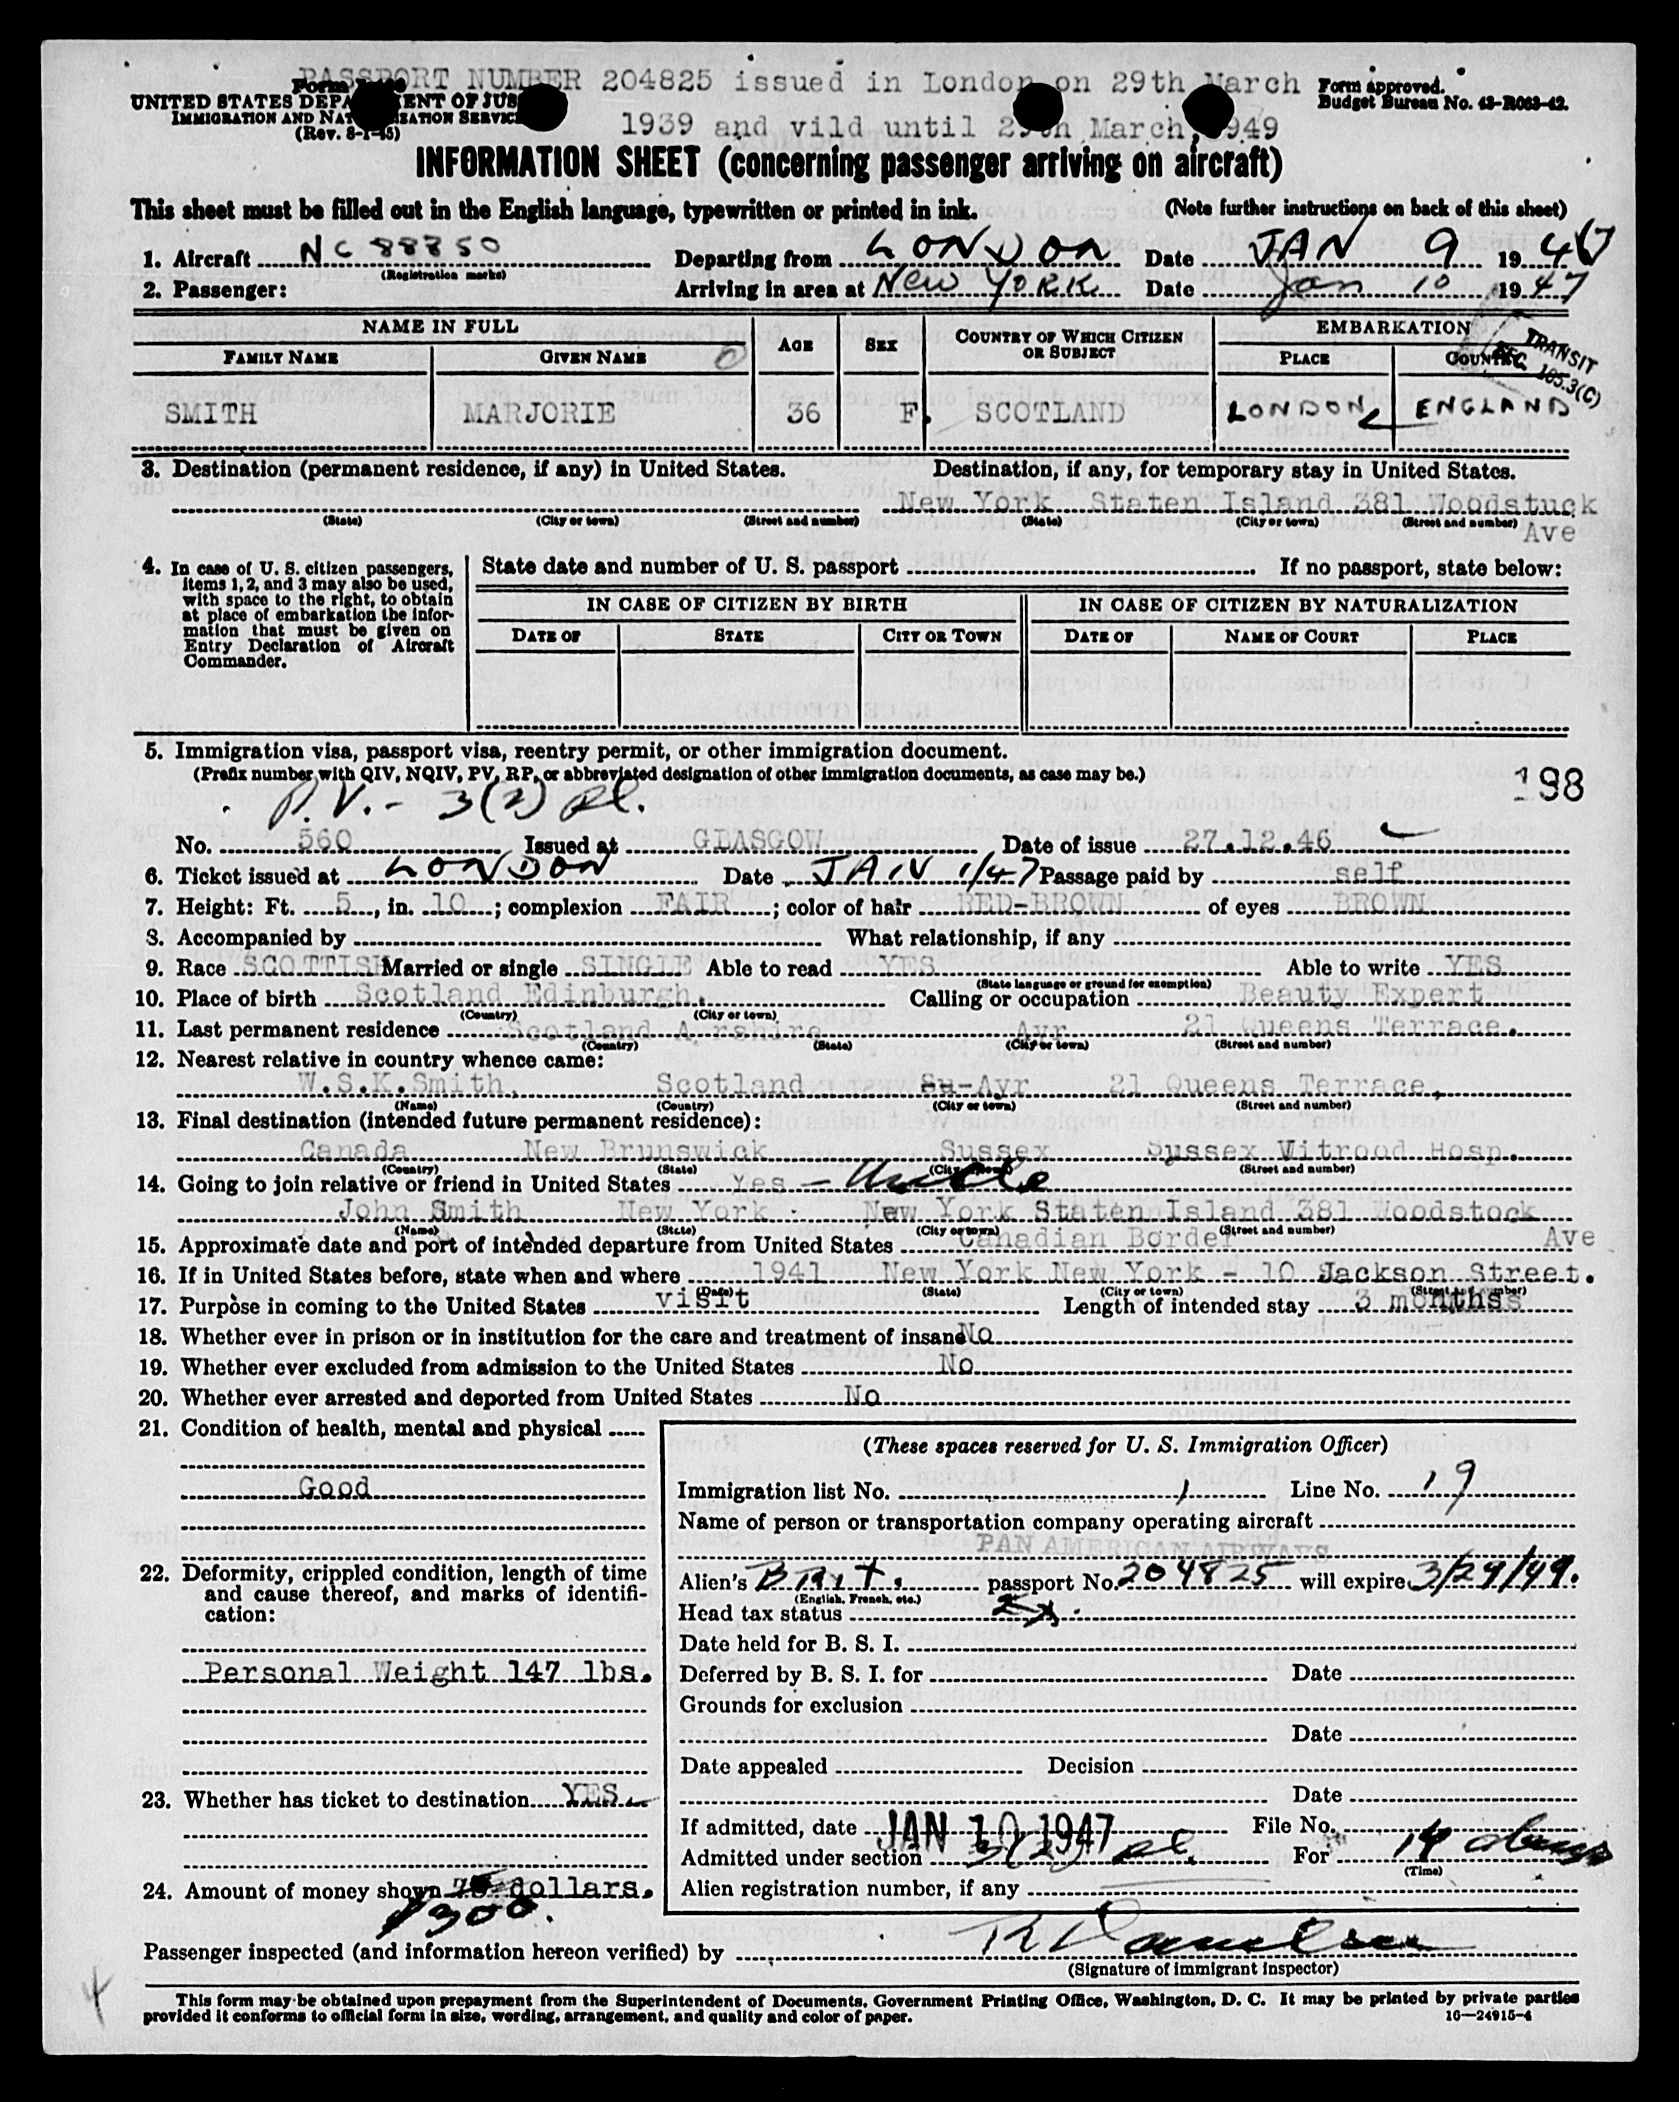 PASSPORT NUMBER 204825 issued in London on 29th March
1939 and vild until 29th March, 1949
Form
UNITED STATES DEPARTMENT OF JUSTICE
IMMIGRATION AND NATURALIZATION SERVICE
(Rev. 8-1-45)
Form approved.
Budget Bureau No. 43-R063-42.
INFORMATION SHEET (concerning passenger arriving on aircraft)
This sheet must be filled out in the English language, typewritten or printed in ink. (Note further instructions on back of this sheet)
1. Aircraft NC 88850 Departing from LONDON Date JAN 9 1947
(Registration marks)
2. Passenger: Arriving in area at NEW YORK Date Jan 10 1947
NAME IN FULL AGE SEX COUNTRY OF WHICH CITIZEN OR SUBJECT EMBARKATION
FAMILY NAME GIVEN NAME PLACE COUNTRY
TRANSIT
SEC. 165.3(C)
SMITH MARJORIE 36 F. SCOTLAND LONDON ENGLAND
3. Destination (permanent residence, if any) in United States. Destination, if any, for temporary stay in United States.
New York Staten Island 381 Woodstuck
(State) (City or town) (Street and number) (State) (City or town) (Street and number)
Ave
4. In case of U. S. citizen passengers, items 1, 2, and 3 may also be used, with space to the right, to obtain at place of embarkation the information that must be given on Entry Declaration of Aircraft Commander.
State date and number of U. S. passport If no passport, state below:
IN CASE OF CITIZEN BY BIRTH IN CASE OF CITIZEN BY NATURALIZATION
DATE OF STATE CITY OR TOWN DATE OF NAME OF COURT PLACE
5. Immigration visa, passport visa, reentry permit, or other immigration document.
(Prefix number with QIV, NQIV, PV, RP, or abbreviated designation of other immigration documents, as case may be.)
198
P.V. - 3(2) pl.
No. 560 Issued at GLASGOW Date of issue 27.12.46
6. Ticket issued at LONDON Date JAN 1/47 Passage paid by self
7. Height: Ft. 5, in. 10; complexion FAIR; color of hair RED-BROWN of eyes BROWN
8. Accompanied by What relationship, if any
9. Race SCOTTISH Married or single SINGLE Able to read YES Able to write YES
(State language or ground for exemption)
10. Place of birth Scotland Edinburgh. Calling or occupation Beauty Expert
(Country) (City or town)
11. Last permanent residence Scotland A rshire Ayr 21 Queens Terrace.
(Country) (State) (City or town) (Street and number)
12. Nearest relative in country whence came:
W.S.K.Smith, Scotland Ayr 21 Queens Terrace,
(Name) (Country) (City or town) (Street and number)
13. Final destination (intended future permanent residence):
Canada New Brunswick Sussex Sussex Vitrood Hosp.
(Country) (State) (City or town) (Street and number)
14. Going to join relative or friend in United States Yes - Uncle
John Smith New York New York Staten Island 381 Woodstock
(Name) (State) (City or town) (Street and number)
Ave
15. Approximate date and port of intended departure from United States Canadian Border
16. If in United States before, state when and where 1941 New York New York - 10 Jackson Street.
(Date) (State) (City or town) (Street and number)
17. Purpose in coming to the United States visit Length of intended stay 3 months
18. Whether ever in prison or in institution for the care and treatment of insane No
19. Whether ever excluded from admission to the United States No
20. Whether ever arrested and deported from United States No
21. Condition of health, mental and physical
Good
22. Deformity, crippled condition, length of time and cause thereof, and marks of identification:
Personal Weight 147 lbs.
23. Whether has ticket to destination YES
24. Amount of money shown 75 dollars.
$300.
(These spaces reserved for U. S. Immigration Officer)
Immigration list No. 1 Line No. 19
Name of person or transportation company operating aircraft
PAN AMERICAN AIRWAYS
Alien's BRIT. passport No. 204825 will expire 3/29/49.
(English, French, etc.)
Head tax status Ex.
Date held for B. S. I.
Deferred by B. S. I. for Date
Grounds for exclusion
Date
Date appealed Decision
Date
If admitted, date JAN 10 1947 File No.
Admitted under section 3(2) pl. For 14 days
(Time)
Alien registration number, if any
Passenger inspected (and information hereon verified) by
(Signature of immigrant inspector)
4
This form may be obtained upon prepayment from the Superintendent of Documents, Government Printing Office, Washington, D. C. It may be printed by private parties
provided it conforms to official form in size, wording, arrangement, and quality and color of paper. 16—24915-4